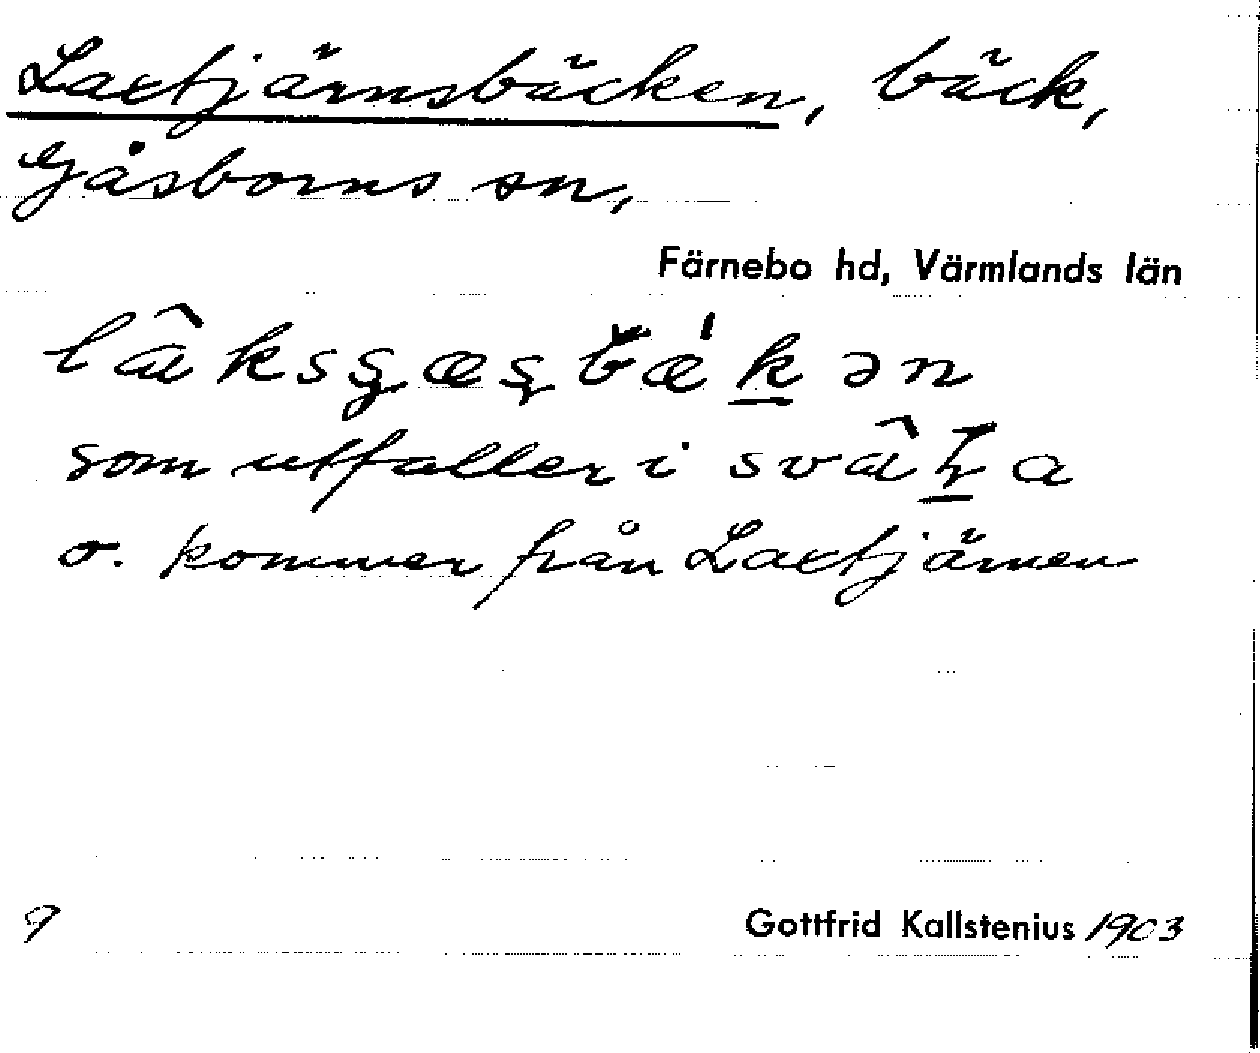 Laxtjärnsbäcken, bäck,
Gåsborns sn,
Färnebo hd, Värmlands län
som utfaller i
o. kommer från Laxtjärnen
9 Gottfrid Kallstenius 1903